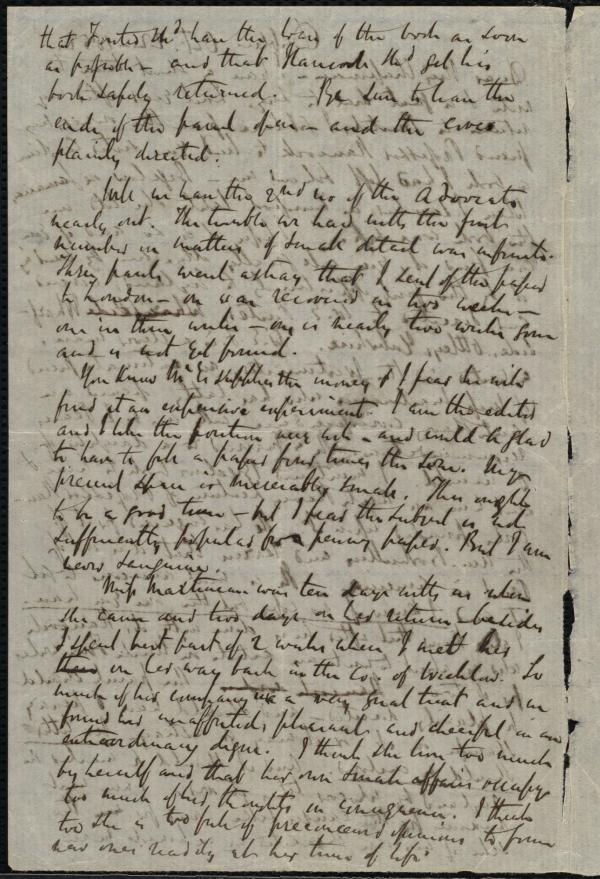 that Foster shd. have the loan of the book as soon
as possible — and that Hancock shd get his
book safely returned. Be sure to have the
ends of the parcel open — and the cover
plainly directed.
Well we have the 2nd no of the Advocate
nearly out. The trouble we had with the first
number in matters of small detail was infinite.
Three parcels went astray that I sent of the paper
to London — one was recovered in two weeks —
one in three weeks — one is nearly two weeks gone
and is not yet found.
You know supplies the money & I fear he will
find it an expensive experiment. I am the editor
and I like the position very well — and could be glad
to have to fill a paper four times the size. My
present space is miserably small. This ought
to be a good time — but I fear the subject is not
sufficiently popular for a penny paper. But I am
never sanguine.
Miss was ten days with us when
she came and two days on her return besides
I spent best part of 2 weeks when I met her
on her way back in the Co. of Wicklow. So
much of her company was a very great treat and we
found her unaffected, pleasant and cheerful in an
extraordinary degree. I think she lives too much
by herself and that her own small affairs occupy
too much of her thoughts in consequence. I think
too she is too full of preconceived opinions to form
new ones readily at her time of life.